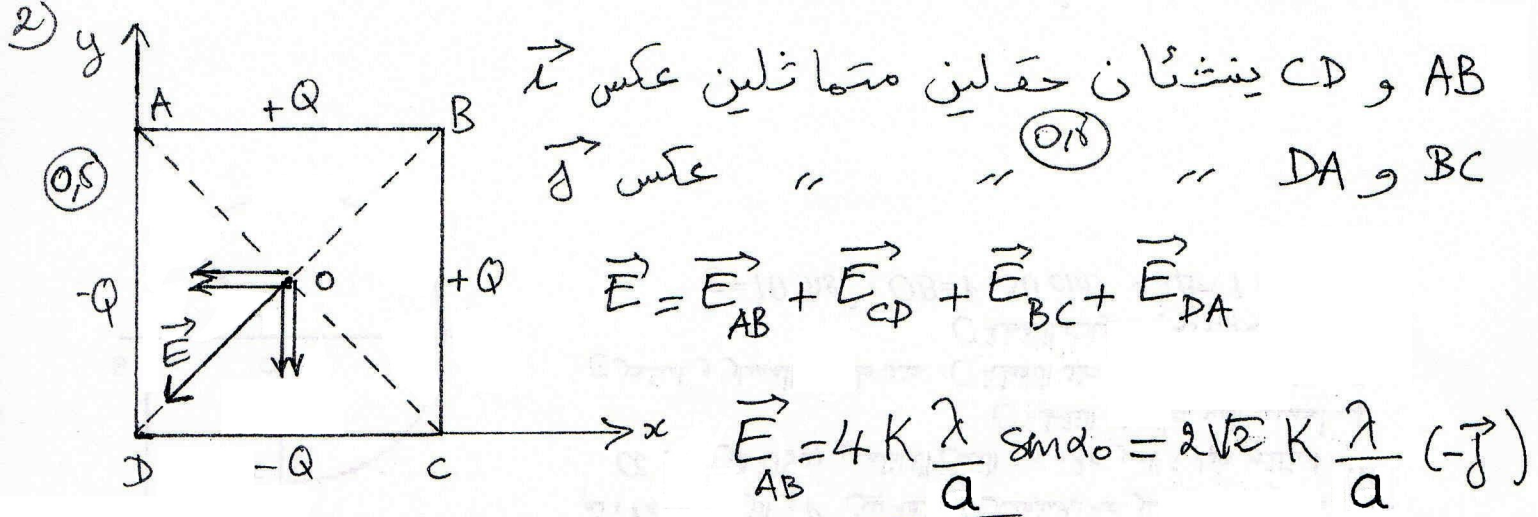 2)
y
A +Q B
0,5
-Q O +Q
E⃗
D -Q C x
AB و CD ينشئان حقلين متماثلين عكس i⃗
0,5
BC و DA 〃 〃 〃 عكس j⃗
E⃗ = E⃗_AB + E⃗_CD + E⃗_BC + E⃗_DA
E⃗_AB = 4 K λ/a sin α₀ = 2√2 K λ/a (-j⃗)